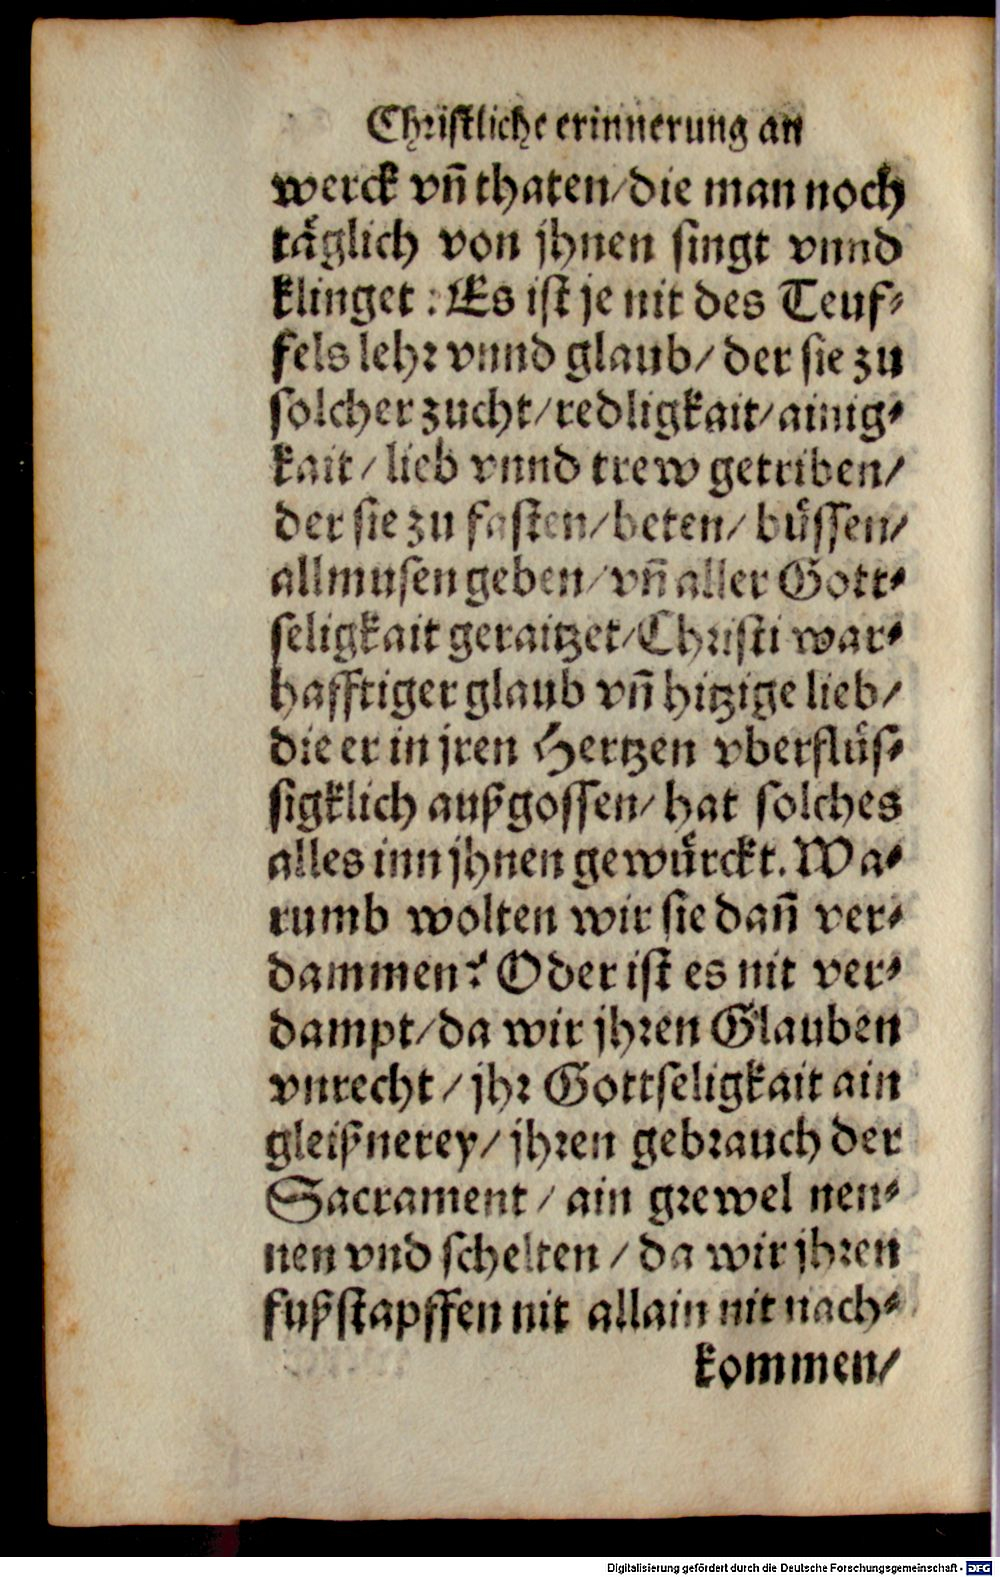 Christliche erinnerung an
werck vñ thaten/die man noch
täglich von jhnen singt vnnd
klinget : Es ist je nit des Teuf⸗
fels lehr vnnd glaub/ der sie zu
solcher zucht/redligkait/ainig⸗
kait/ lieb vnnd trew getriben/
der sie zu fasten/beten/ büssen/
allmusen geben/vñ aller Gott⸗
seligkait geraitzet/Christi war⸗
hafftiger glaub vñ hitzige lieb/
die er in jren Hertzen vberflüs⸗
sigklich außgossen/ hat solches
alles inn jhnen gewürckt. Wa⸗
rumb wolten wir sie dañ ver⸗
dammen? Oder ist es nit ver⸗
dampt/da wir jhren Glauben
vnrecht/ jhr Gottseligkait ain
gleißnerey/ jhren gebrauch der
Sacrament/ ain grewel nen⸗
nen vnd schelten/ da wir jhren
fußstapffen nit allain nit nach⸗
kommen/
Digitalisierung gefördert durch die Deutsche Forschungsgemeinschaft - DFG